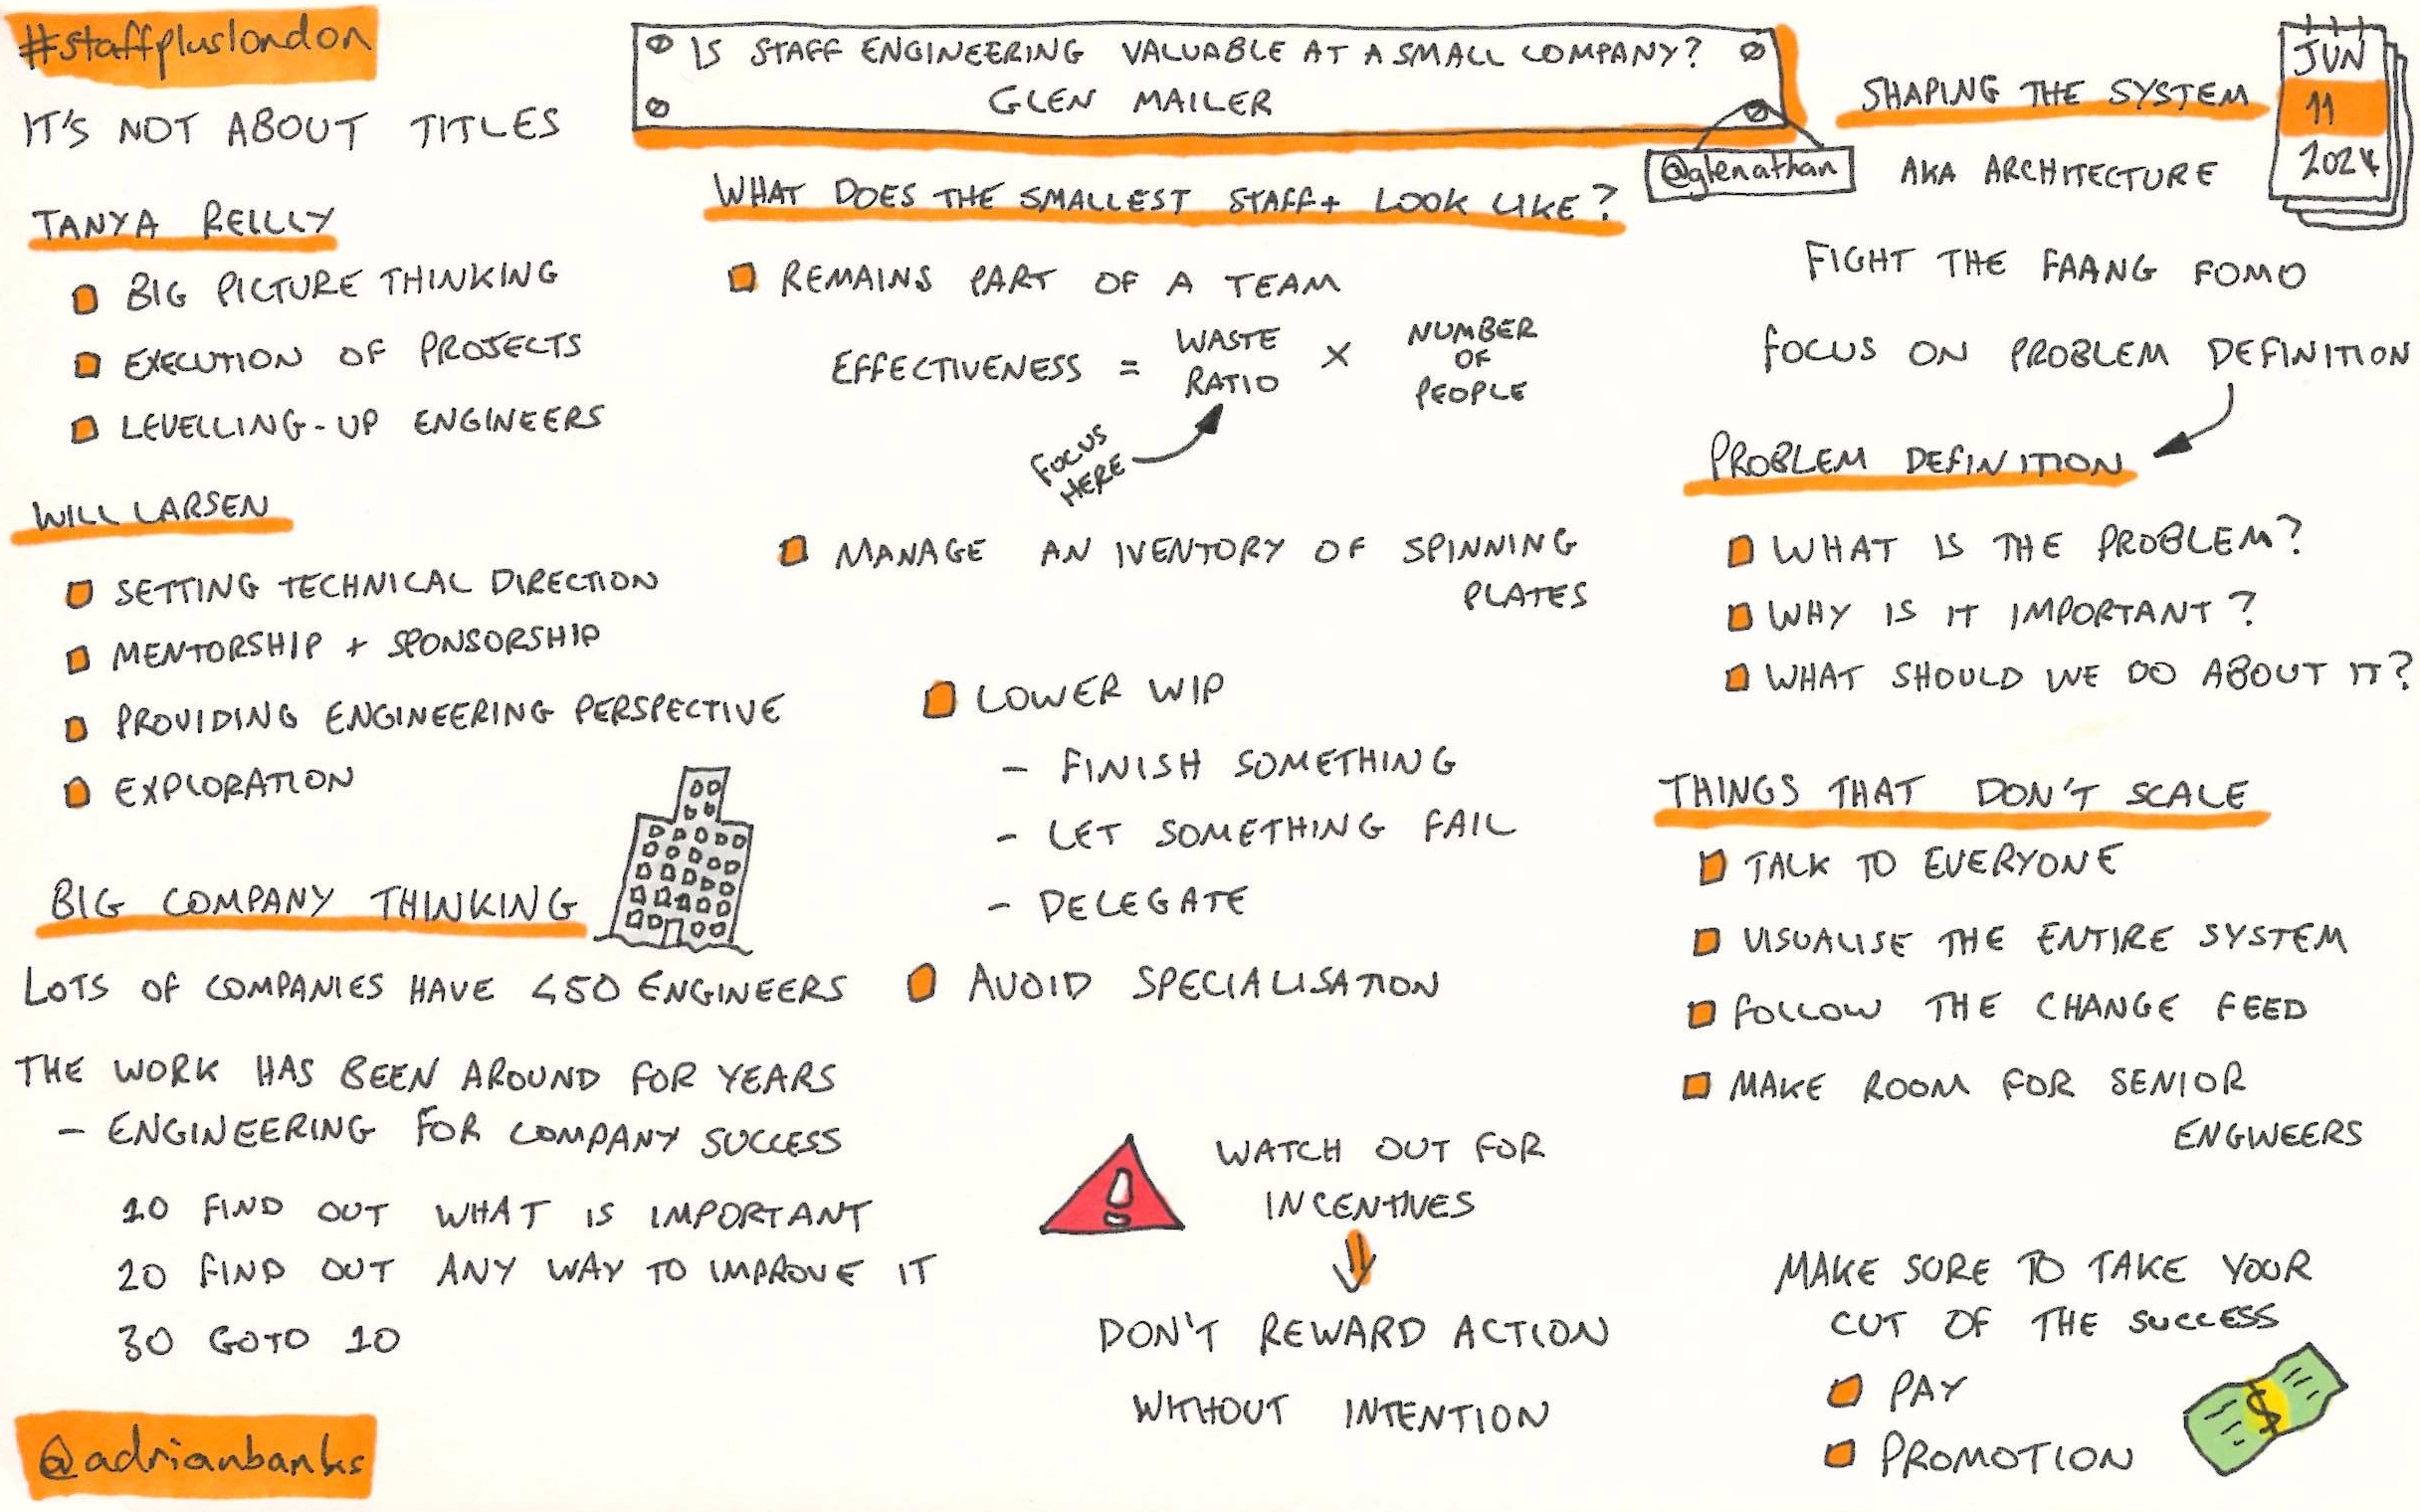 #staffpluslondon
IT'S NOT ABOUT TITLES
TANYA REILLY
BIG PICTURE THINKING
EXECUTION OF PROJECTS
LEVELLING-UP ENGINEERS
WILL LARSEN
SETTING TECHNICAL DIRECTION
MENTORSHIP + SPONSORSHIP
PROVIDING ENGINEERING PERSPECTIVE
EXPLORATION
BIG COMPANY THINKING
LOTS OF COMPANIES HAVE <50 ENGINEERS
THE WORK HAS BEEN AROUND FOR YEARS
- ENGINEERING FOR COMPANY SUCCESS
10 FIND OUT WHAT IS IMPORTANT
20 FIND OUT ANY WAY TO IMPROVE IT
30 GOTO 10
@adrianbanks
IS STAFF ENGINEERING VALUABLE AT A SMALL COMPANY?
GLEN MAILER
@glenathan
WHAT DOES THE SMALLEST STAFF+ LOOK LIKE?
REMAINS PART OF A TEAM
EFFECTIVENESS = WASTE RATIO × NUMBER OF PEOPLE
FOCUS
HERE
MANAGE AN IVENTORY OF SPINNING
PLATES
LOWER WIP
- FINISH SOMETHING
- LET SOMETHING FAIL
- DELEGATE
AVOID SPECIALISATION
!
WATCH OUT FOR
INCENTIVES
DON'T REWARD ACTION
WITHOUT INTENTION
SHAPING THE SYSTEM
JUN
11
2024
AKA ARCHITECTURE
FIGHT THE FAANG FOMO
FOCUS ON PROBLEM DEFINITION
PROBLEM DEFINITION
WHAT IS THE PROBLEM?
WHY IS IT IMPORTANT?
WHAT SHOULD WE DO ABOUT IT?
THINGS THAT DON'T SCALE
TALK TO EVERYONE
VISUALISE THE ENTIRE SYSTEM
FOLLOW THE CHANGE FEED
MAKE ROOM FOR SENIOR
ENGINEERS
MAKE SURE TO TAKE YOUR
CUT OF THE SUCCESS
PAY
PROMOTION
$